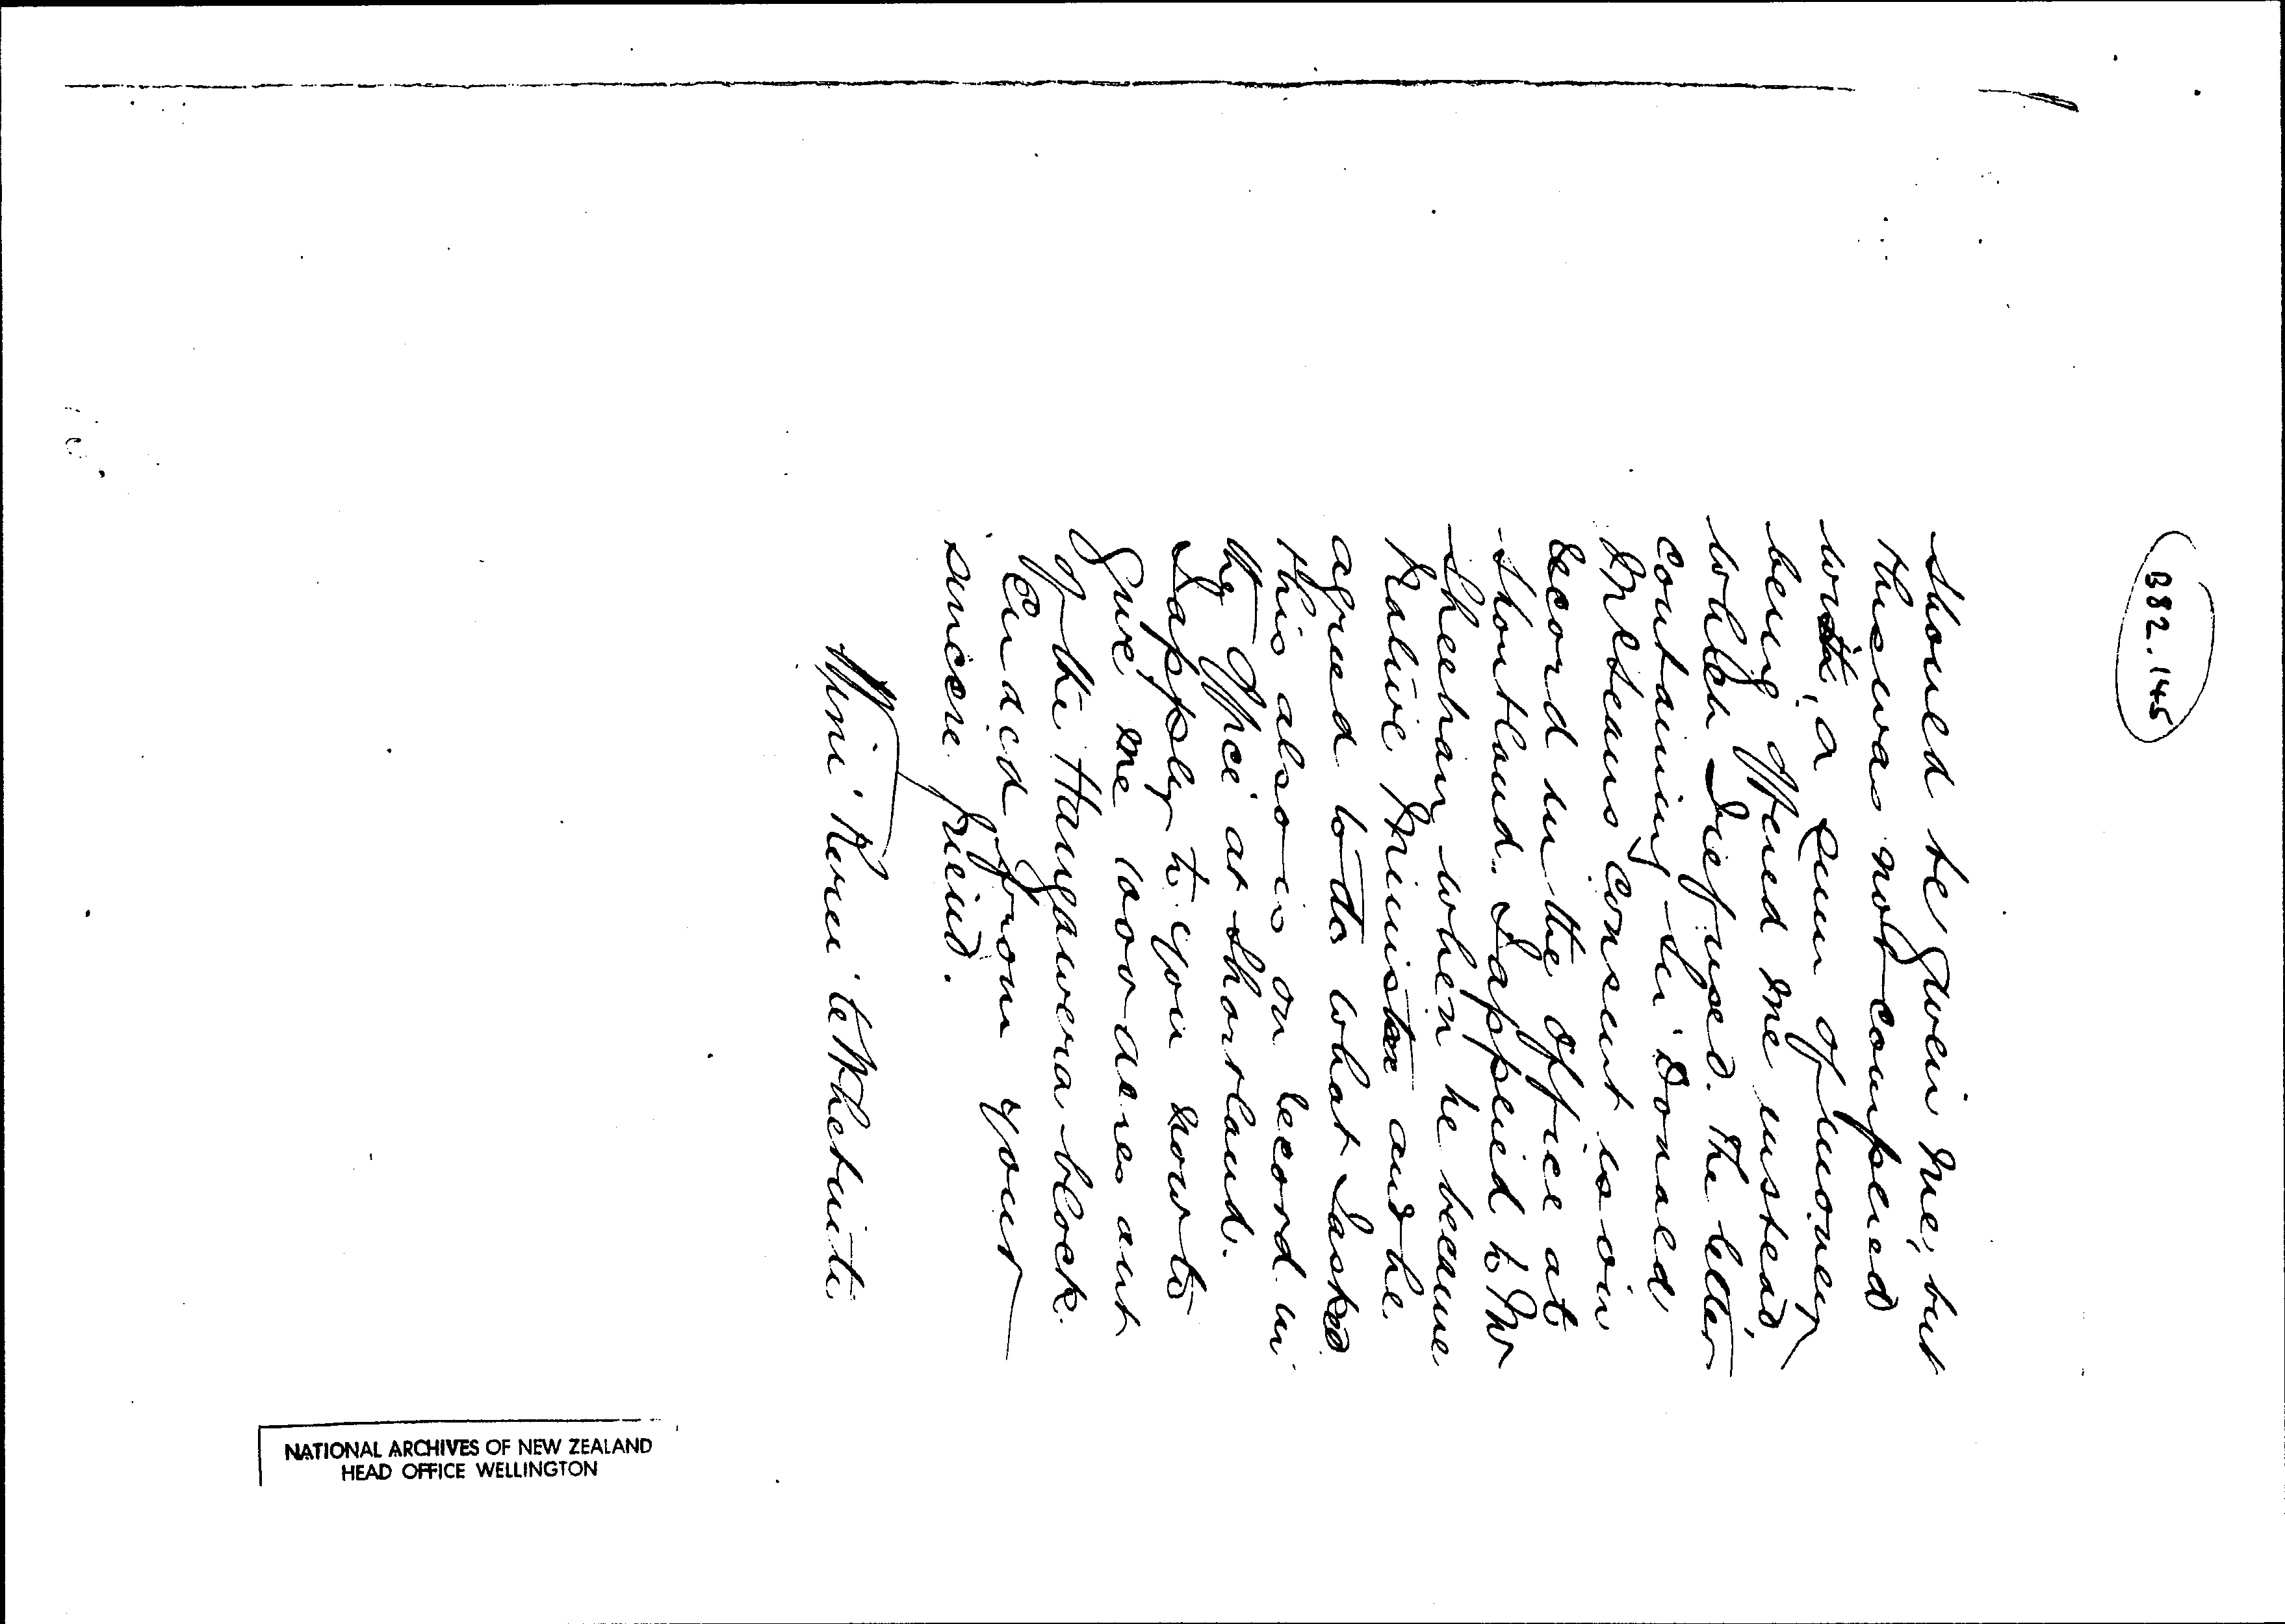 B82.145
should be given me, but
this was not complied
with, a sum of money
being offered me instead,
which I refused. The letter
containing Sir Donald
McLeans consent is on
record in the office at
Shortland. I applied to Mr
Sheehan when he became
Native Minister and he
agreed to do what I asked
this also is on record in
the Office at Shortland.
I apply to you now to
give me 1000 acres out
of the Hangawera block.
Ended from your
sincere friend.
Wini Kerei
NATIONAL ARCHIVES OF NEW ZEALAND
HEAD OFFICE WELLINGTON